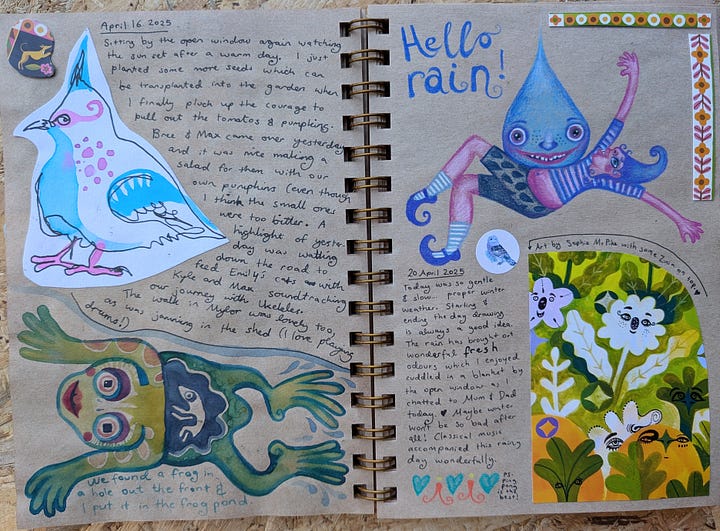 April 16. 2025
Sitting by the open window again watching
the sun set after a warm day. I just
planted some more seeds which can
be transplanted into the garden when
I finally pluck up the courage to
pull out the tomatos & pumpkins.
Bree & Max came over yesterday
and it was nice making a
salad for them with our
own pumpkins (even though
I think the small ones
were too bitter. A
highlight of yester-
day was walking
down the road to
feed Emily's cats with
Kyle and Max soundtracking
our journey with Ukeleles.
The walk in Mylor was lovely too,
as was jamming in the shed (I love playing
drums!)
We found a frog in
a hole out the front &
I put it in the frog pond.
Hello
rain!
20 April 2025
Today was so gentle
& slow... proper winter
weather. Starting &
ending the day drawing
is always a good idea.
The rain has brought out
wonderful fresh
odours which I enjoyed
cuddled in a blanket by
the open window as I
chatted to Mum & Dad
today. ♥ Maybe winter
won't be so bad after
all! Classical music
accompanied this rainy
day wonderfully.
PS:
ping
pong
is the
best!
Art by Sophie McPike with some Zwin on top ♥